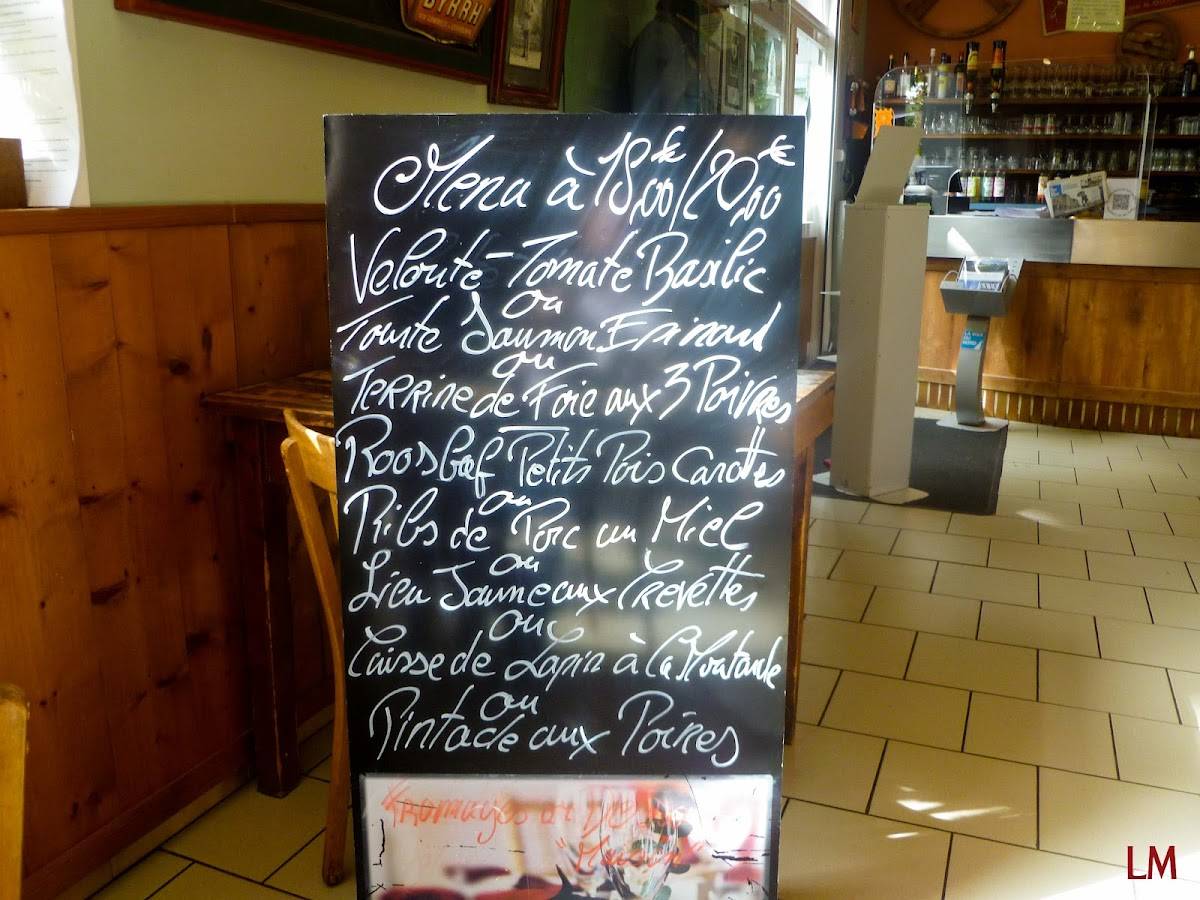 BYRRH
Menu à 18,00€/20,00€
Velouté Tomate Basilic
ou
Tourte Saumon Epinard
ou
Terrine de Foie aux 3 Poivres
Roosbœf Petits Pois Carottes
ou
Ribs de Porc au Miel
ou
Lieu Jaune aux Crevettes
ou
Cuisse de Lapin à la Moutarde
ou
Pintade aux Poires
Fromages ou Dessert
"Maison"
LM